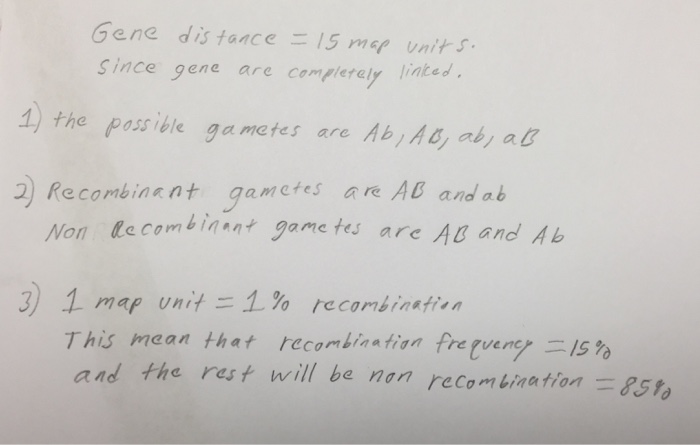 Gene distance = 15 map units.
Since gene are completely linked.
1) the possible gametes are Ab, AB, ab, aB
2) Recombinant gametes are AB and ab
Non Recombinant gametes are AB and Ab
3) 1 map unit = 1% recombination
This mean that recombination frequency = 15%
and the rest will be non recombination = 85%